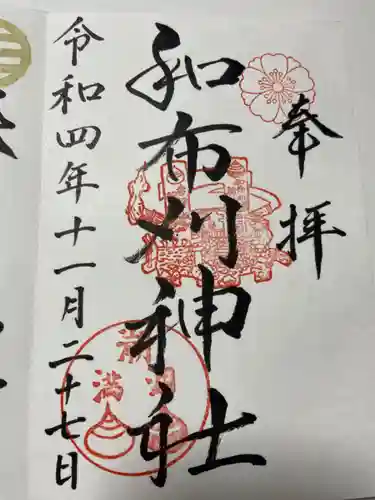 奉拝
和布刈神社
令和四年十一月二十七日
満
潮